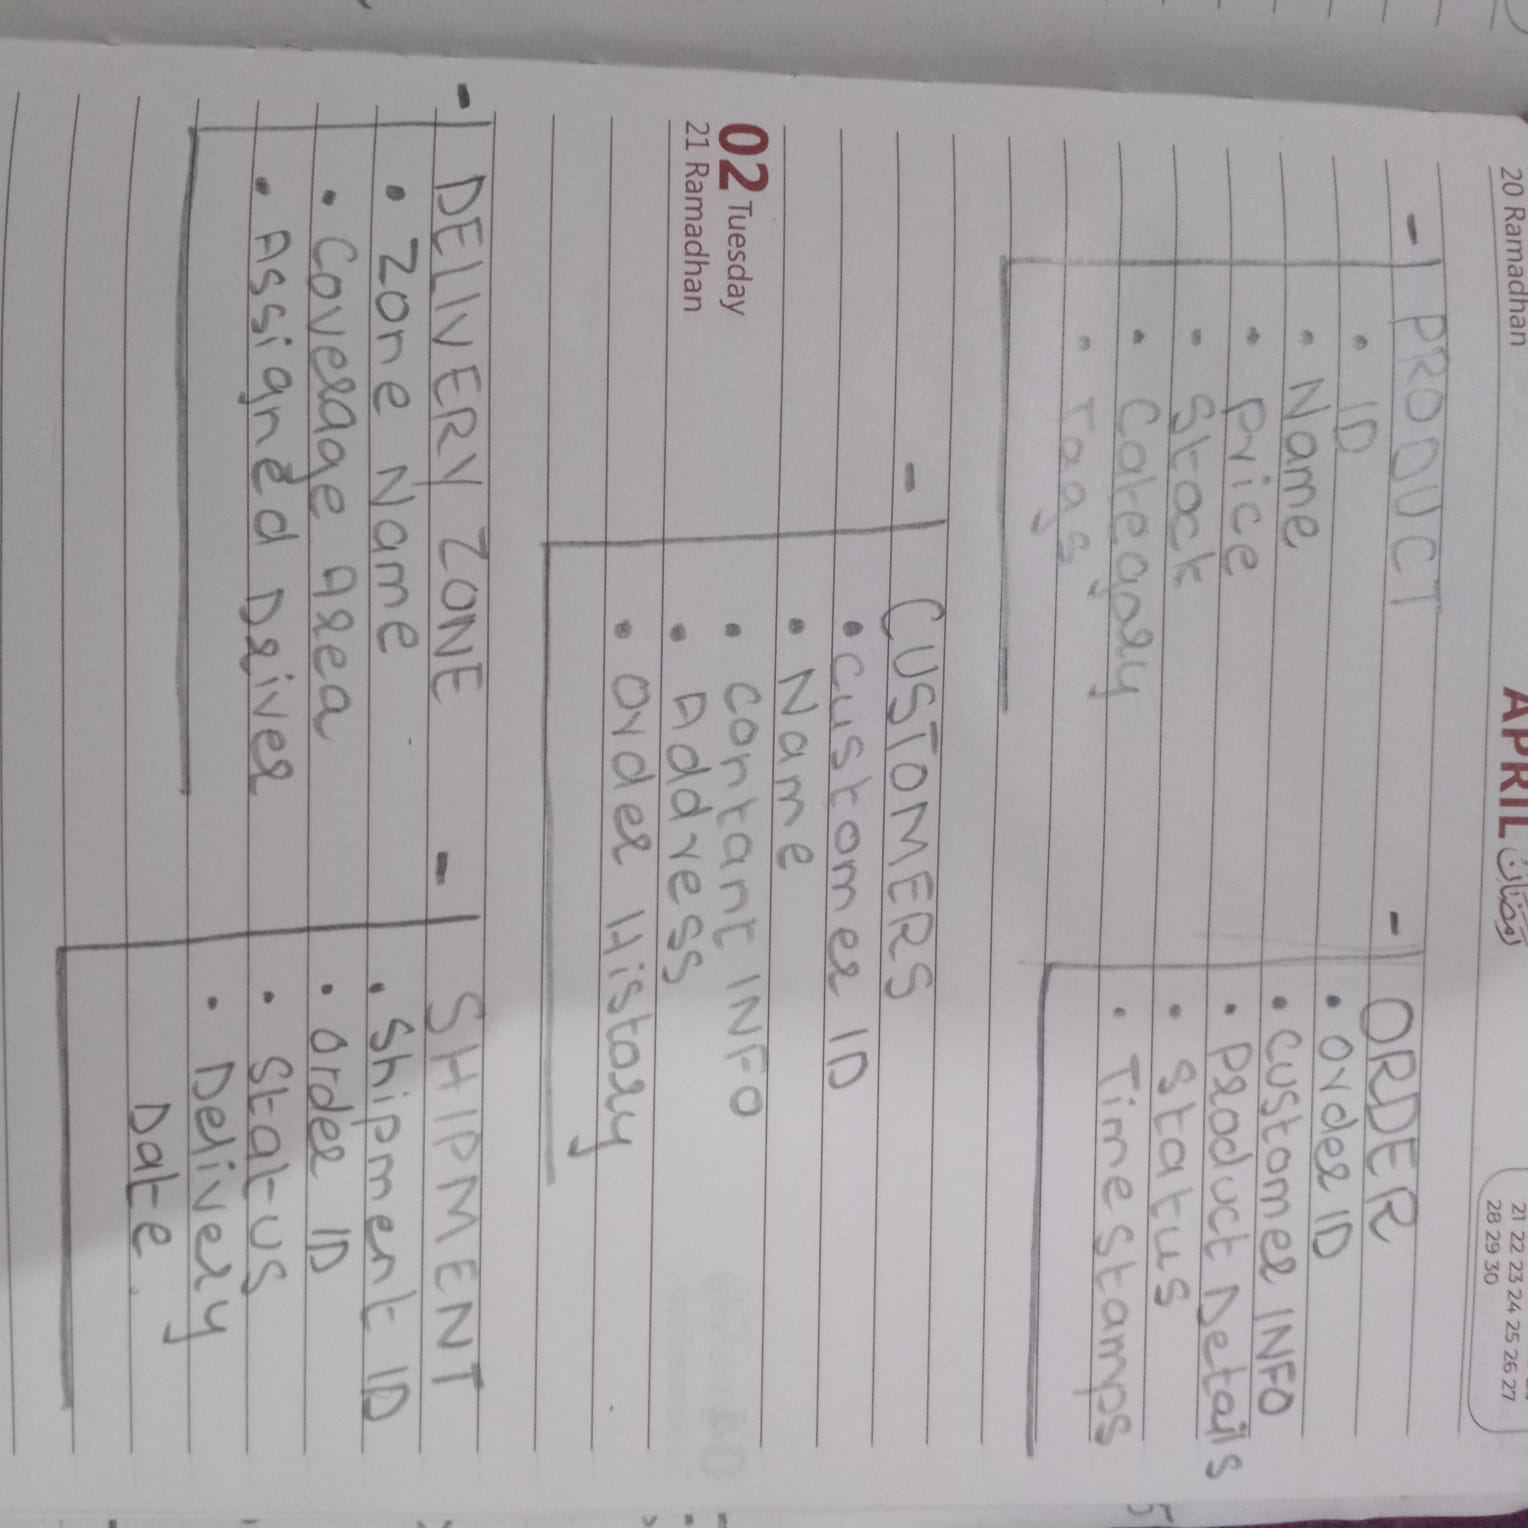 20 Ramadhan
APRIL رمضان
21 22 23 24 25 26 27
28 29 30
- PRODUCT
• ID
• Name
• Price
• Stock
• Category
• Tags
- ORDER
• Order ID
• Customer INFO
• Product Details
• Status
• Timestamps
- CUSTOMERS
• Customer ID
• Name
• Contant INFO
• Address
• Order History
02 Tuesday
21 Ramadhan
- DELIVERY ZONE
• Zone Name
• Coverage Area
• Assigned Driver
- SHIPMENT
• Shipment ID
• Order ID
• Status
• Delivery
Date.